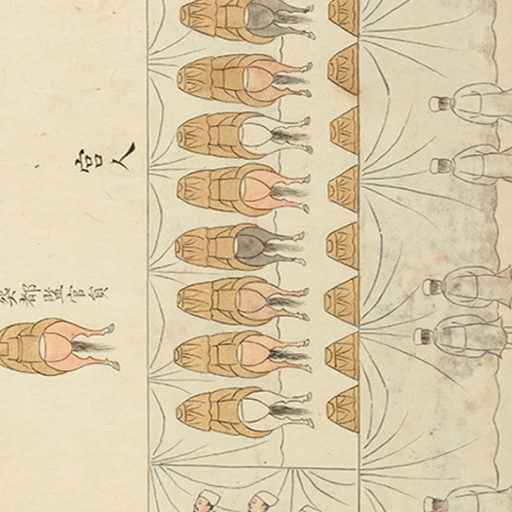 宮人
都監官員